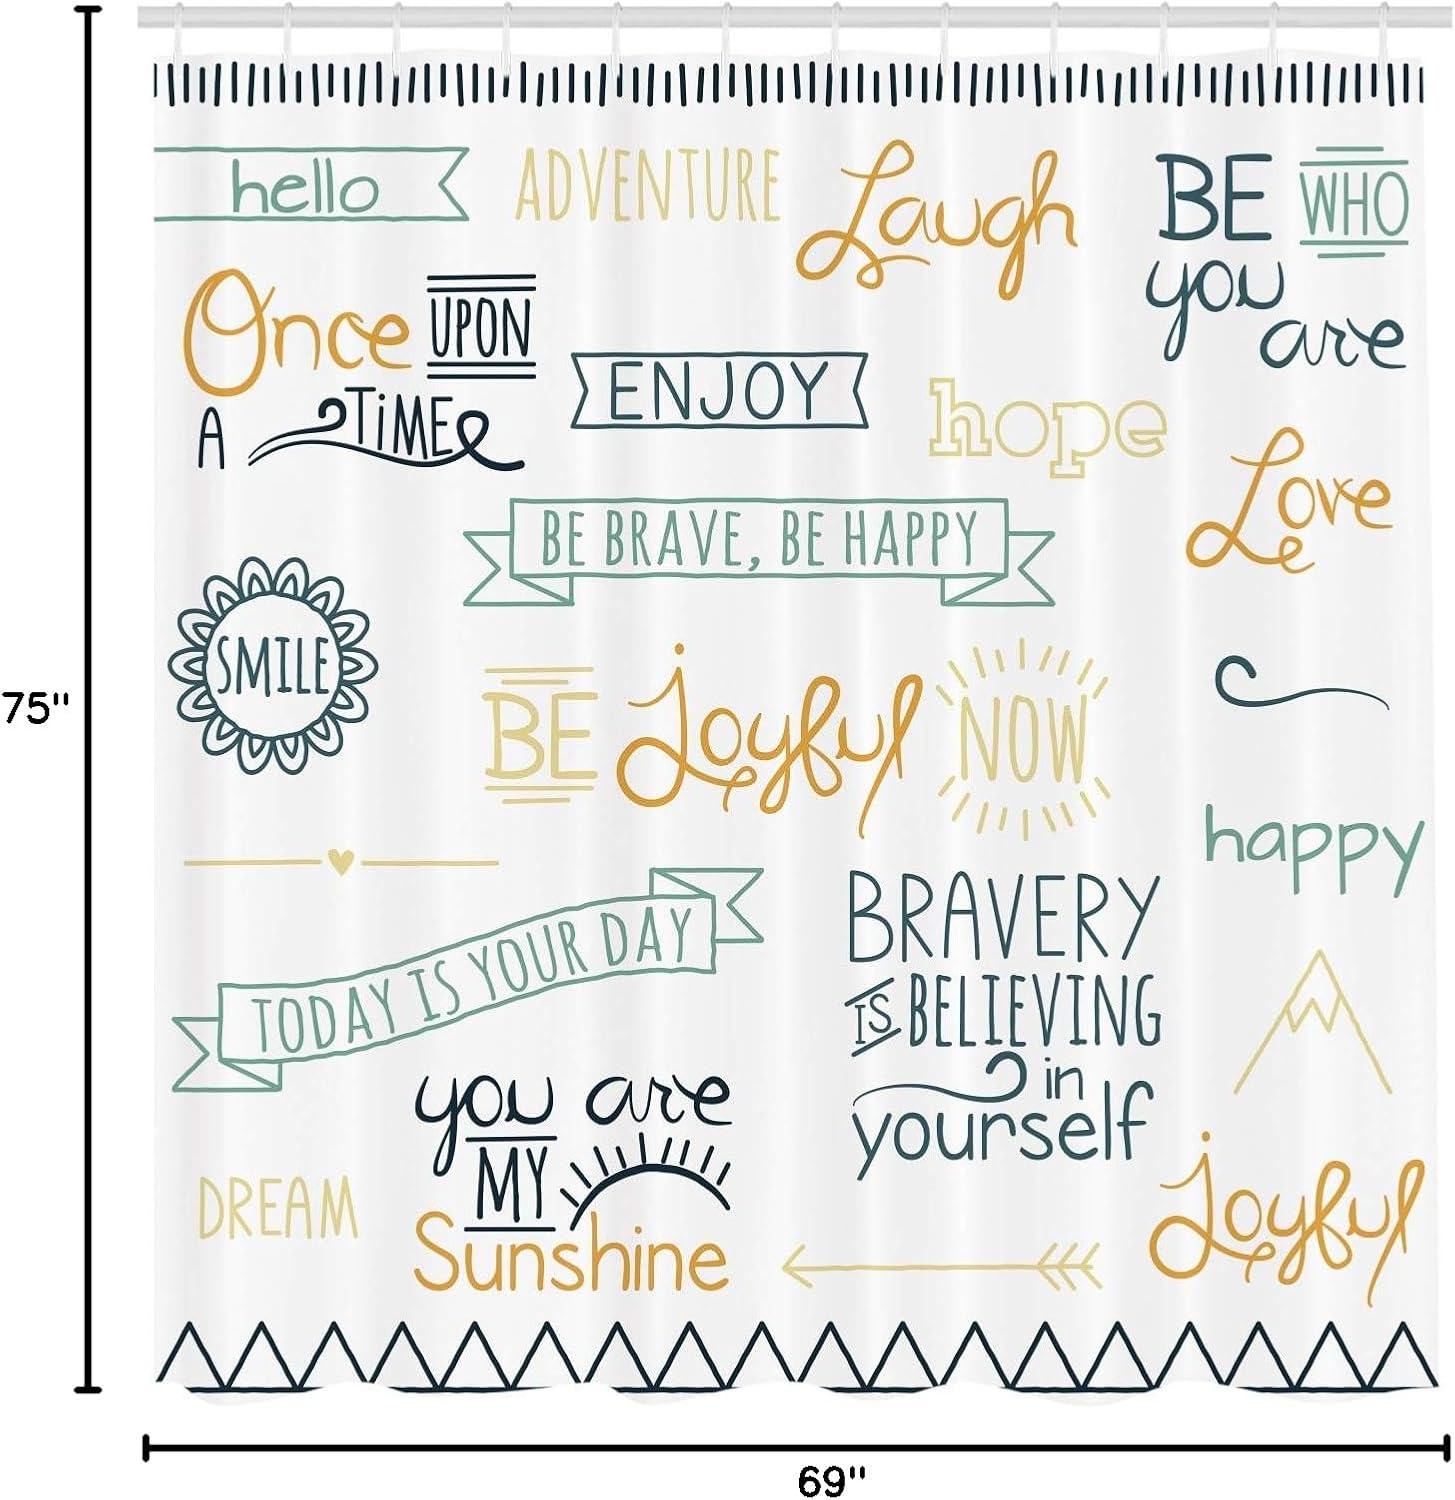 hello
ADVENTURE
Laugh
BE WHO
you
are
Once UPON
A TIME
ENJOY
hope
Love
BE BRAVE, BE HAPPY
SMILE
BE Joyful NOW
happy
TODAY IS YOUR DAY
BRAVERY
IS BELIEVING
in
yourself
you are
MY
Sunshine
DREAM
Joyful
75"
69"